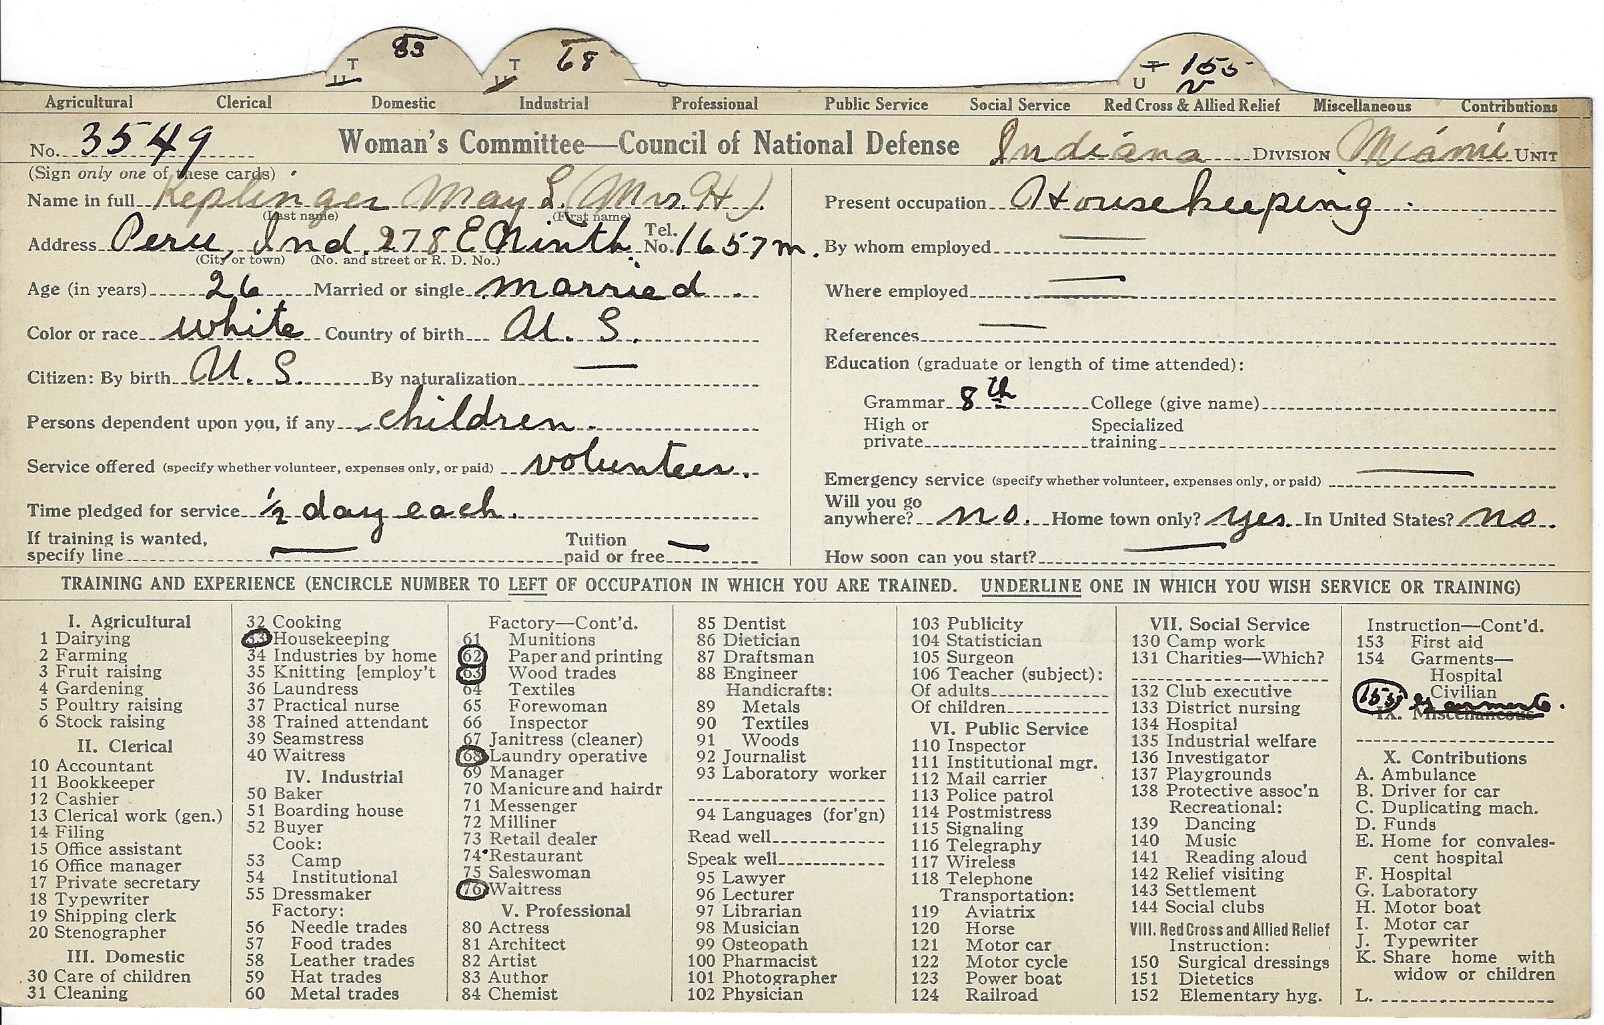 T 83 T 68 T 155
U U U v
Agricultural Clerical Domestic Industrial Professional Public Service Social Service Red Cross & Allied Relief Miscellaneous Contributions
No. 3549 Woman's Committee—Council of National Defense Indiana DIVISION Miami UNIT
(Sign only one of these cards)
Name in full Keplinger May L. (Mrs. H)
(Last name) (First name)
Address Peru, Ind 278 E Ninth Tel. No. 1657m.
(City or town) (No. and street or R. D. No.)
Age (in years) 26 Married or single married.
Color or race white Country of birth U. S.
Citizen: By birth U. S. By naturalization —
Persons dependent upon you, if any children.
Service offered (specify whether volunteer, expenses only, or paid) volunteer.
Time pledged for service 1/2 day each.
If training is wanted, specify line — Tuition paid or free —
Present occupation Housekeeping.
By whom employed —
Where employed —
References —
Education (graduate or length of time attended):
Grammar 8th College (give name)
High or private Specialized training
Emergency service (specify whether volunteer, expenses only, or paid) —
Will you go anywhere? no. Home town only? yes. In United States? no.
How soon can you start? —
TRAINING AND EXPERIENCE (ENCIRCLE NUMBER TO LEFT OF OCCUPATION IN WHICH YOU ARE TRAINED. UNDERLINE ONE IN WHICH YOU WISH SERVICE OR TRAINING)
I. Agricultural
1 Dairying
2 Farming
3 Fruit raising
4 Gardening
5 Poultry raising
6 Stock raising
II. Clerical
10 Accountant
11 Bookkeeper
12 Cashier
13 Clerical work (gen.)
14 Filing
15 Office assistant
16 Office manager
17 Private secretary
18 Typewriter
19 Shipping clerk
20 Stenographer
III. Domestic
30 Care of children
31 Cleaning
32 Cooking
33 Housekeeping
34 Industries by home
35 Knitting [employ't
36 Laundress
37 Practical nurse
38 Trained attendant
39 Seamstress
40 Waitress
IV. Industrial
50 Baker
51 Boarding house
52 Buyer
Cook:
53 Camp
54 Institutional
55 Dressmaker
Factory:
56 Needle trades
57 Food trades
58 Leather trades
59 Hat trades
60 Metal trades
Factory—Cont'd.
61 Munitions
62 Paper and printing
63 Wood trades
64 Textiles
65 Forewoman
66 Inspector
67 Janitress (cleaner)
68 Laundry operative
69 Manager
70 Manicure and hairdr
71 Messenger
72 Milliner
73 Retail dealer
74 Restaurant
75 Saleswoman
76 Waitress
V. Professional
80 Actress
81 Architect
82 Artist
83 Author
84 Chemist
85 Dentist
86 Dietician
87 Draftsman
88 Engineer
Handicrafts:
89 Metals
90 Textiles
91 Woods
92 Journalist
93 Laboratory worker
94 Languages (for'gn)
Read well
Speak well
95 Lawyer
96 Lecturer
97 Librarian
98 Musician
99 Osteopath
100 Pharmacist
101 Photographer
102 Physician
103 Publicity
104 Statistician
105 Surgeon
106 Teacher (subject):
Of adults
Of children
VI. Public Service
110 Inspector
111 Institutional mgr.
112 Mail carrier
113 Police patrol
114 Postmistress
115 Signaling
116 Telegraphy
117 Wireless
118 Telephone
Transportation:
119 Aviatrix
120 Horse
121 Motor car
122 Motor cycle
123 Power boat
124 Railroad
VII. Social Service
130 Camp work
131 Charities—Which?
132 Club executive
133 District nursing
134 Hospital
135 Industrial welfare
136 Investigator
137 Playgrounds
138 Protective assoc'n
Recreational:
139 Dancing
140 Music
141 Reading aloud
142 Relief visiting
143 Settlement
144 Social clubs
VIII. Red Cross and Allied Relief
Instruction:
150 Surgical dressings
151 Dietetics
152 Elementary hyg.
Instruction—Cont'd.
153 First aid
154 Garments—
Hospital
Civilian
155 Garments.
IX. Miscellaneous
X. Contributions
A. Ambulance
B. Driver for car
C. Duplicating mach.
D. Funds
E. Home for convales-
cent hospital
F. Hospital
G. Laboratory
H. Motor boat
I. Motor car
J. Typewriter
K. Share home with
widow or children
L.